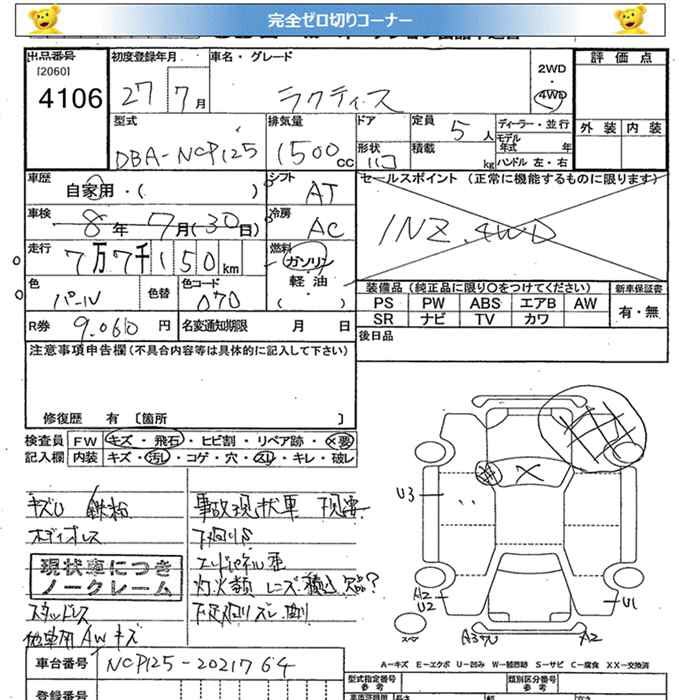 完全ゼロ切りコーナー
出品番号
[2060]
4106
初度登録年月
27 7月
車名・グレード
ラクティス
2WD
4WD
評価点
外装 内装
型式
DBA-NCP125
排気量
1500cc
ドア
形状
定員
5人
積載
kg
ディーラー・並行
モデル
年式 年
ハンドル 左・右
車歴
自家用・( )
シフト
AT
セールスポイント (正常に機能するものに限ります)
1NZ.4WD
車検
8年 7月(30日)
冷房
AC
走行
7万7千150km
燃料
ガソリン
軽油
( )
色
パール
色替
色コード
070
装備品 (純正品に限り○をつけてください)
新車保証書
PS PW ABS エアB AW
有・無
SR ナビ TV カワ
R券
9.060円
名変通知期限 月 日
後日品
注意事項申告欄(不具合内容等は具体的に記入して下さい)
修復歴 有 〔箇所 〕
検査員
記入欄
FW キズ・飛石・ヒビ割・リペア跡・×要
内装 キズ・汚し・コゲ・穴・スレ・キレ・破レ
キズU 鉄粉
ボディオレス
現状車につき
ノークレーム
スタッドレス
他車用AWキズ
事故現状車 現要
下廻りS
エンドパネル歪
下廻りズレ
U3
A2
U2
U1
スペア
A2
A－キズ E－エクボ U－凹み W－補修跡 S－サビ C－腐食 XX－交換済
車台番号
NCP125-2021764
登録番号
型式指定番号
参考
類別区分番号
参考